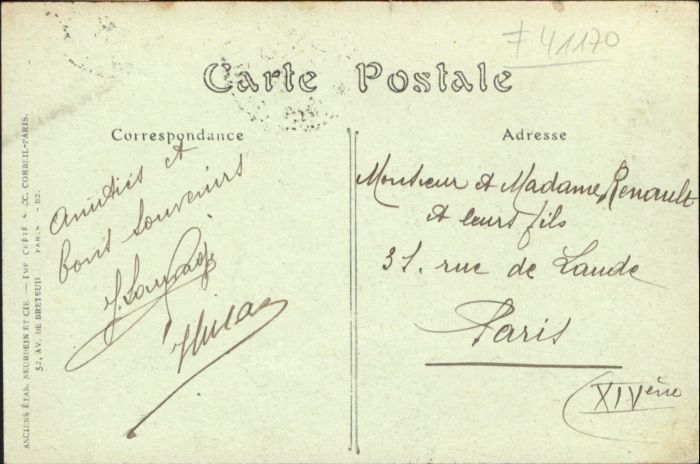 ≠ 41170
Carte Postale
Correspondance
Adresse
Amitiés et
bons souvenirs
Monsieur et Madame Renault
et leurs fils
31. rue de Laude
Paris
(XIVème
ANCIENS ÉTAB. NEURDEIN ET CIE. — IMP. CRÉTÉ S. CC. CORBEIL-PARIS.
52, AV. DE BRETEUIL PARIS